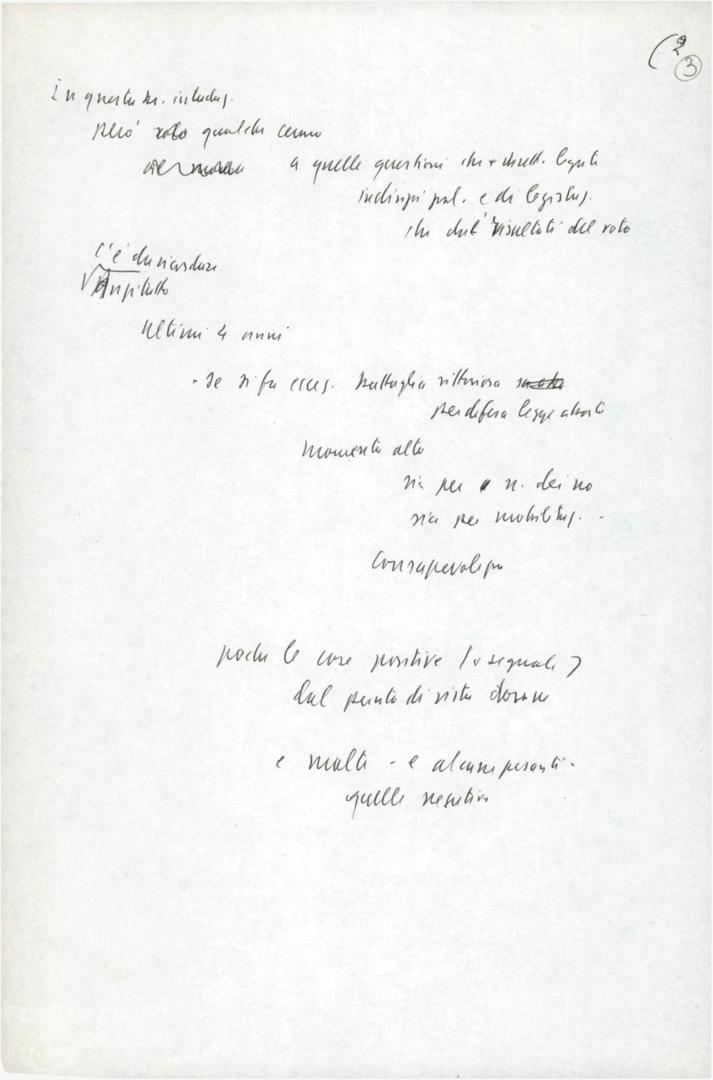 (2
3
In questa
Però solo qualche cenno
a quelle questioni che + dirett. legate
pol. e di legislaz.
che dai risultati del voto
C'è da ricordare
Anzitutto
Ultimi 4 anni
- Se si fa eccez. battaglia vittoriosa
per difesa legge aborto
Momento alto
sia per n. dei no
sia per mobilitaz. -
Consapevolezza
poche le cose positive (v segnale)
dal punto di vista donne
e molte - e alcune pesanti -
quelle negative